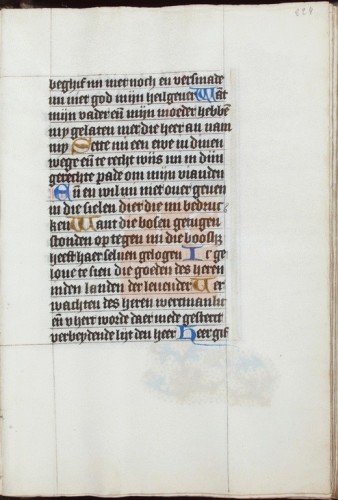 224
beghif mi niet noch en versmade
mi niet god mijn heilgever Want
mijn vader eñ mijn moeder hebbē
my gelaten mer die heer an nam
my Sette mi een ewe in dinen
wege eñ te recht wijs mi in dijn
gerechte pade om mijn vianden
Eñ en wil mi niet over geven
in die sielen dier die mi bedruc-
ken Want die bosen getugen
stonden op tegen mi eñ die boosheit
heeft haer selven gelogen Ic ge
love te sien die goeden des heren
inden landen der levender Ver
wachten des heren wert manlic
eñ v hert worde daer mede gesterct
verbeydende lijt den heer Heer gif